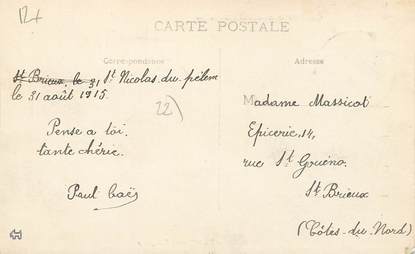 CARTE POSTALE
Correspondance
Adresse
St Brieux, le 31 St Nicolas du pélem
le 31 août 1915
22)
Pense a toi
tante chérie.
Paul
Madame Massicot
Epicerie, 14,
rue St Gouéno.
St Brieux
(Côtes-du-Nord)